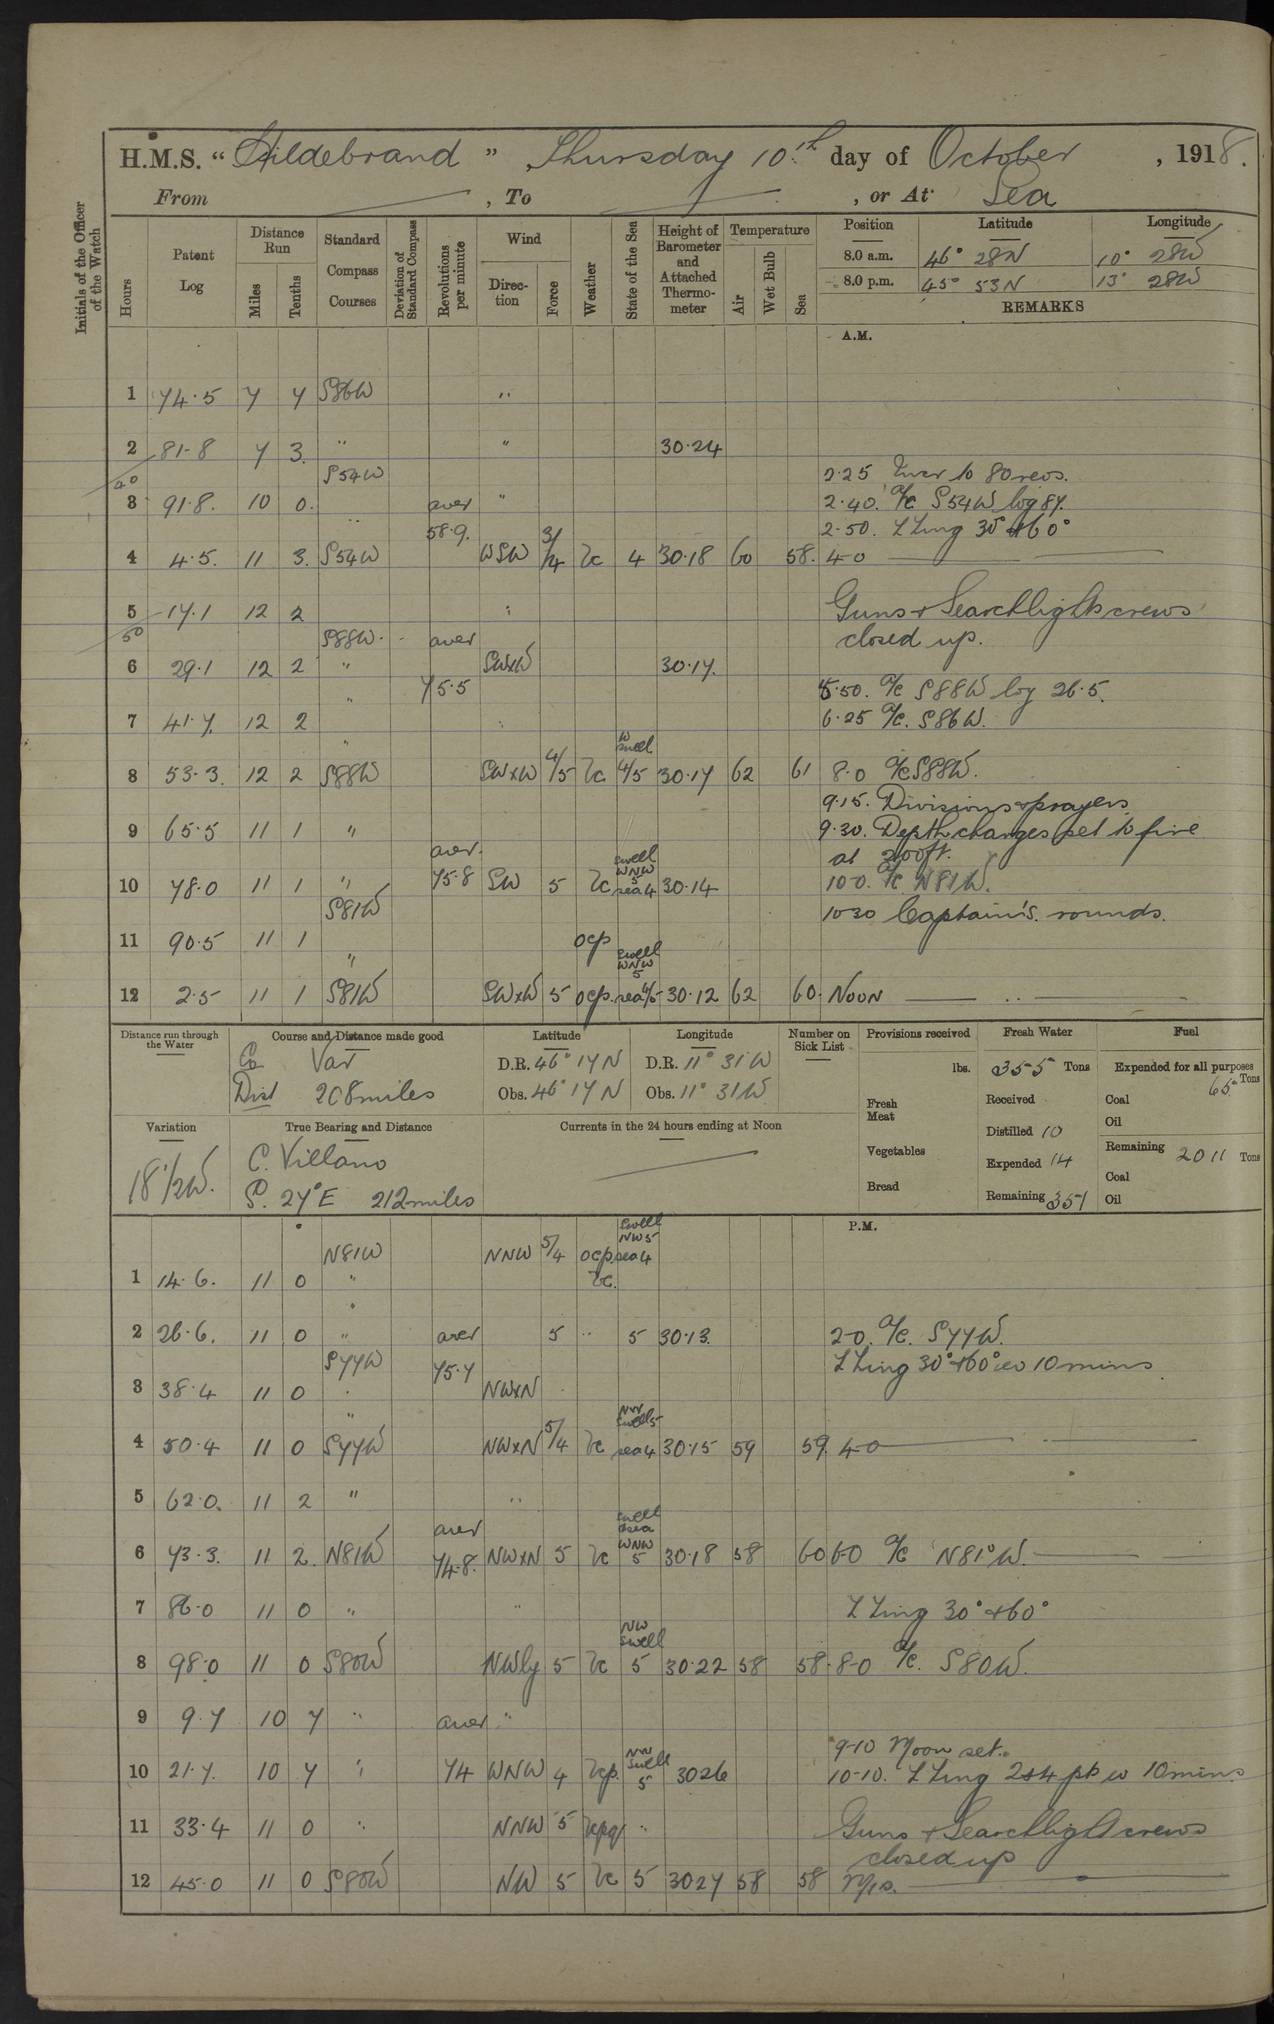 H.M.S. "Hildebrand", Thursday 10th day of October, 1918.
From , To , or At Sea
Initials of the Officer of the Watch
Hours
Patent Log
Distance Run
Miles
Tenths
Standard Compass Courses
Deviation of Standard Compass
Revolutions per minute
Wind
Direction
Force
Weather
State of the Sea
Height of Barometer and Attached Thermometer
Temperature
Air
Wet Bulb
Sea
Position Latitude Longitude
8.0 a.m. 46° 28N 10° 28W
8.0 p.m. 45° 53N 13° 28W
REMARKS
A.M.
1 74.5 7 7 S86W "
2 81.8 7 3. " " 30.24
40 S54W 2.25 Incr to 80 revs.
3 91.8. 10 0. aver " 2.40. A/c S54W log 87.
" 58.9. 2.50. ZZing 30° & 60°
4 4.5. 11 3. S54W WSW 3/4 bc 4 30.18 60 58. 4-0
5 17.1 12 2 " Guns & Searchlight crews
50 S88W. aver closed up.
6 29.1 12 2 " SWxW 30.17.
" 75.5 5.50. A/c S88W log 26.5.
7 41.7. 12 2 " 6.25 A/c. S86W.
" W swell
8 53.3. 12 2 S88W SWxW 4/5 bc 4/5 30.17 62 61 8.0 A/c S88W.
9.15. Divisions & prayers
9 65.5 11 1 " 9.30. Depth charges set to fire
aver. swell WNW 5 at 200ft.
10 78.0 11 1 " 75.8 SW 5 bc sea 4 30.14 10-0. A/c N81W.
S81W 10-30 Captain's rounds.
11 90.5 11 1 ocp
" swell WNW 5
12 2.5 11 1 S81W SWxW 5 ocp. sea 4/5 30.12 62 60. NOON
Distance run through the Water
Course and Distance made good
Co Var
Dist 208 miles
Latitude
D.R. 46° 17N
Obs. 46° 17N
Longitude
D.R. 11° 31W
Obs. 11° 31W
Number on Sick List
Provisions received
lbs.
Fresh Meat
Vegetables
Bread
Fresh Water
355 Tons
Received
Distilled 10
Expended 14
Remaining 351
Fuel
Expended for all purposes
65. Tons
Coal
Oil
Remaining 2011 Tons
Coal
Oil
Variation
18 1/2W.
True Bearing and Distance
C. Villano
S. 27°E 212 miles
Currents in the 24 hours ending at Noon
P.M.
swell NW5
N81W NNW 5/4 ocp. sea 4
1 14.6. 11 0 " bc.
2 26.6. 11 0 " aver 5 " 5 30.13. 2-0. A/c. S77W.
S77W 75.7 ZZing 30° & 60° ev 10 mins
3 38.4 11 0 " NWxN
" NW swell 5
4 50.4 11 0 S77W NWxN 5/4 bc sea 4 30.15 59 59. 4-0
5 62.0. 11 2 " "
aver swell & sea WNW
6 73.3. 11 2. N81W 74.8. NWxN 5 bc 5 30.18 58 60 6-0 A/c N81°W.
7 86.0 11 0 " " ZZing 30° & 60°
NW swell
8 98.0 11 0 S80W NWly 5 bc 5 30.22 58 58. 8-0 A/c. S80W.
9 9.7 10 7 " aver "
9-10 Moon set.
NW swell
10 21.7. 10 7 " 74 WNW 4 bcp. 5 30 26 10-10. ZZing 2&4 pts ev 10 mins
11 33.4 11 0 " NNW 5 bcpq " Guns & Searchlight crews
closed up
12 45.0 11 0 S80W NW 5 bc 5 30 27 58 58 M/n.